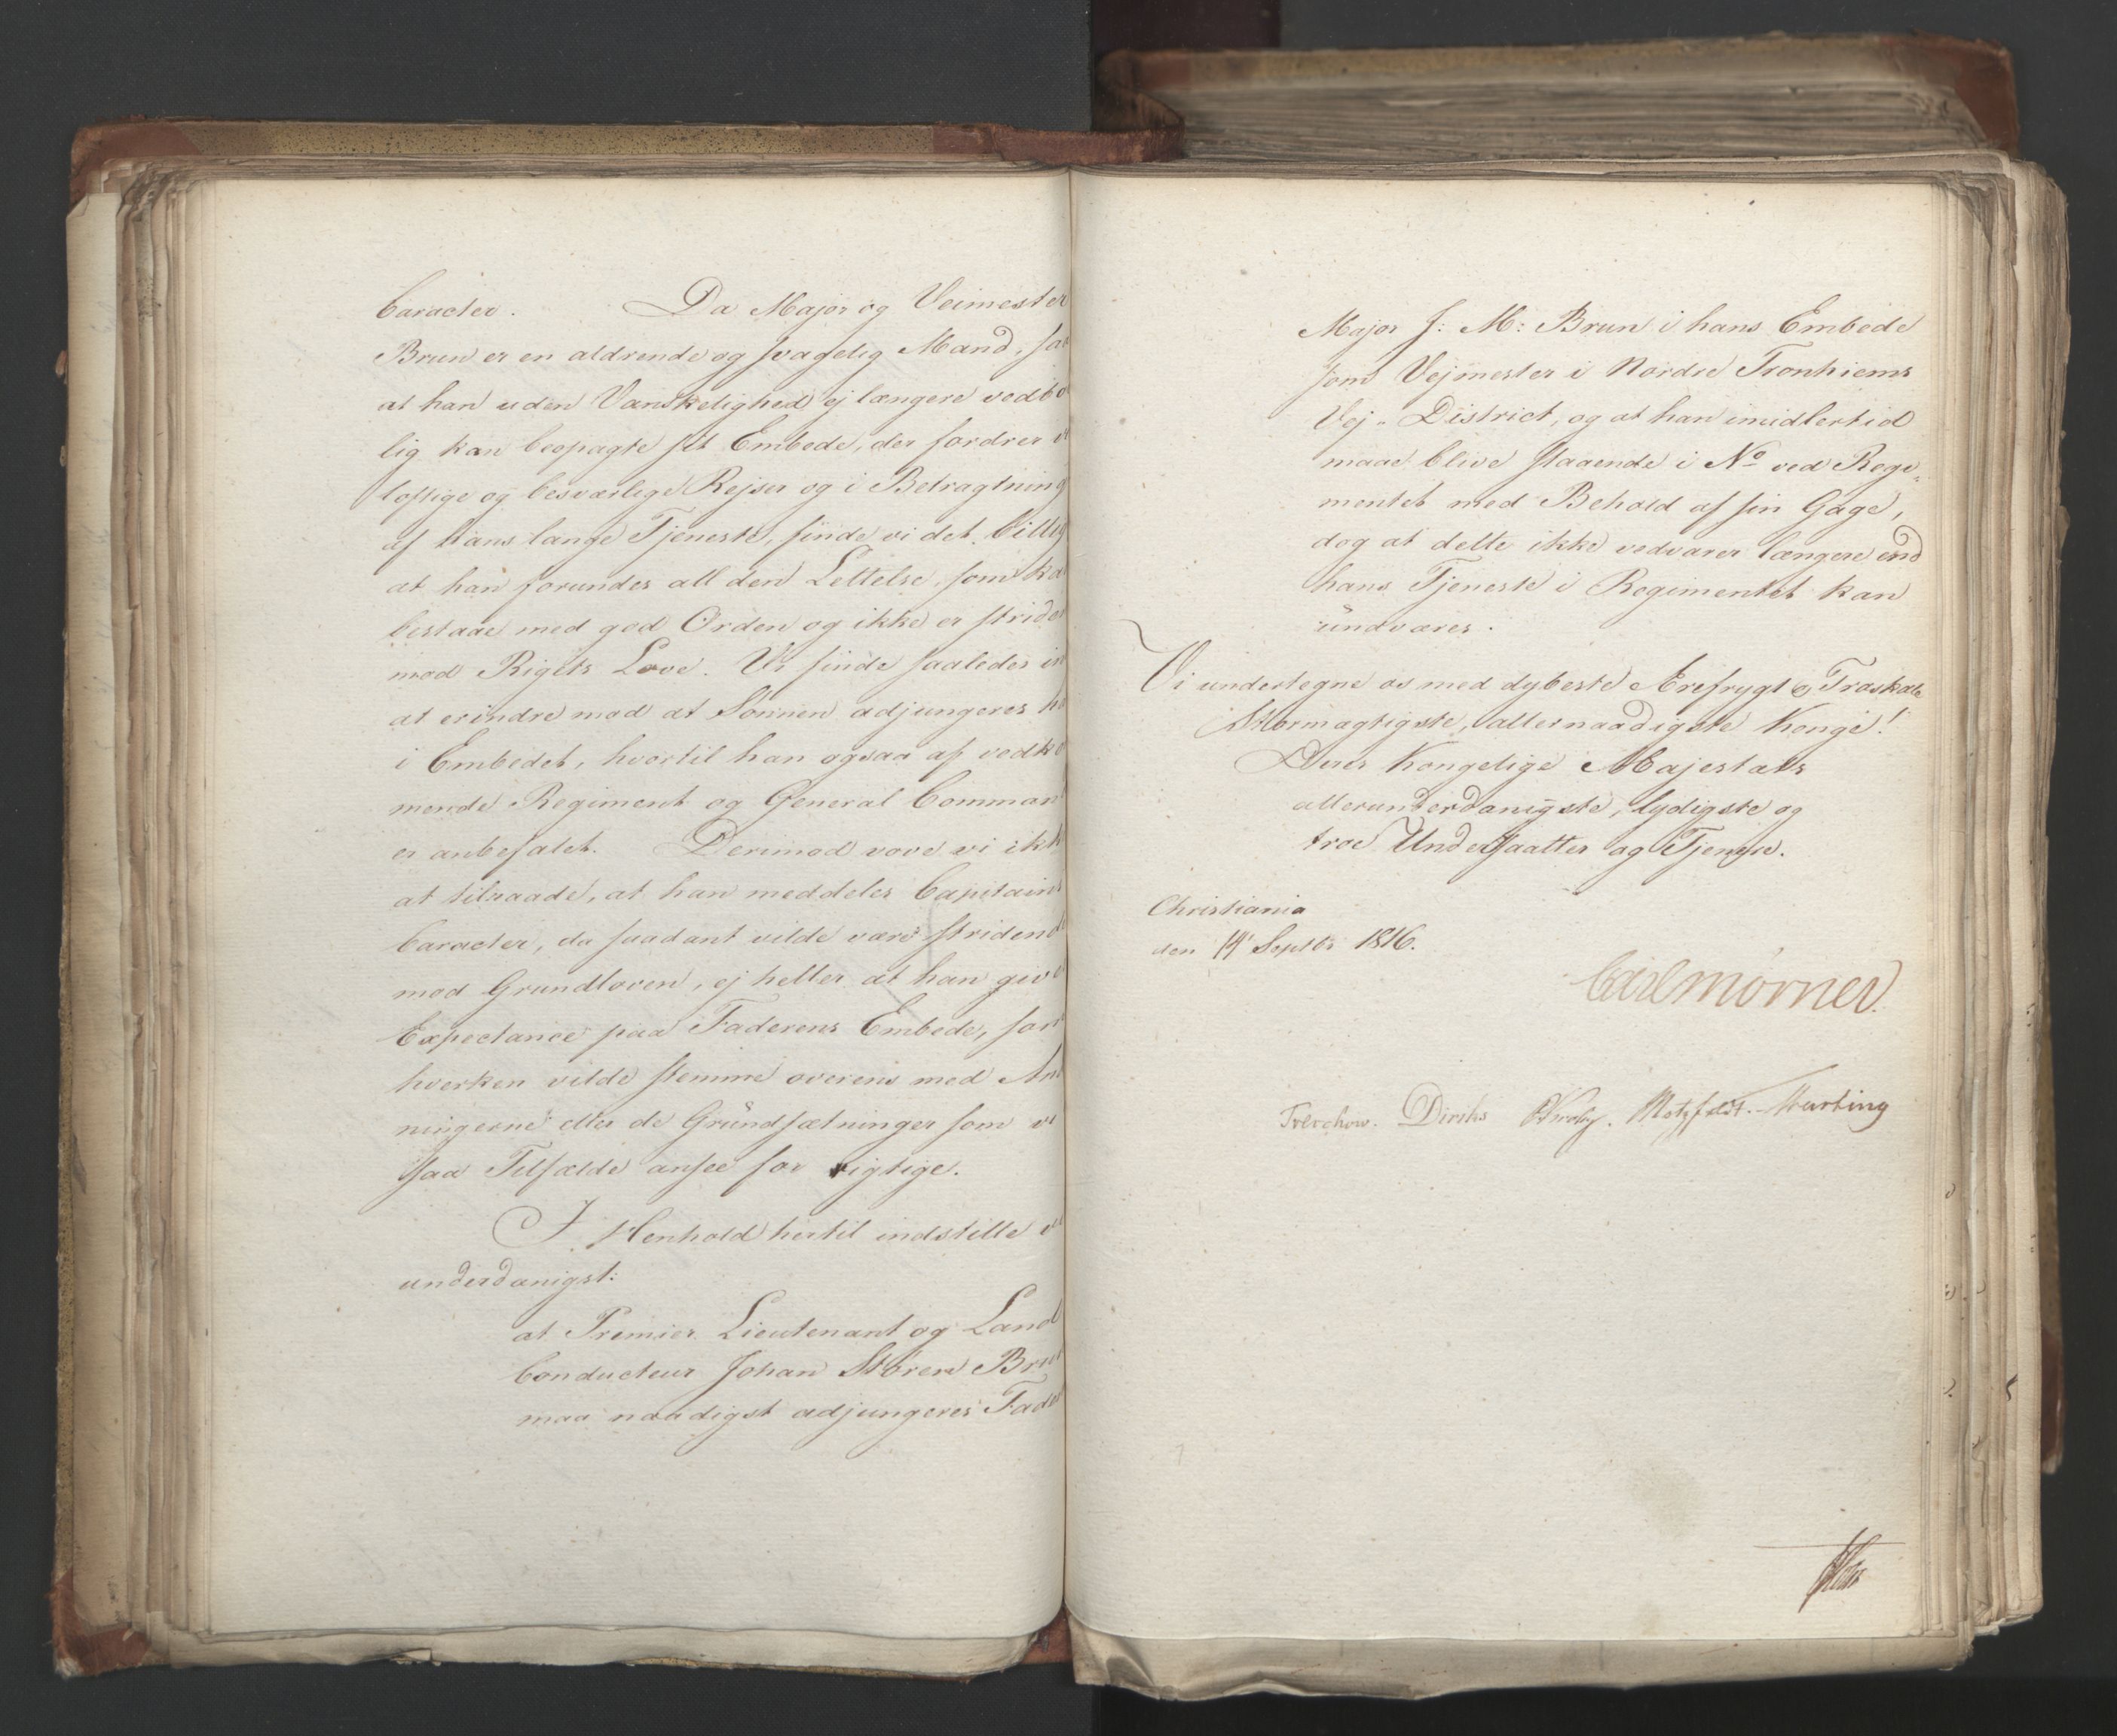 Caracter. Da Major og Veimester
Brun er en aldrende og svagelig Mand, saa
at han uden Vanskelighed ej længere vedbø
lig kan besøgte sit Embede, der fordrer v
løftige og besværlige Rejser og i Betragtning
af hans lange Tjeneste, finde vi det billig
at han forundes all den Lettelse, som ka
bestaae med god Orden og ikke er striden
mod Rigets Love. Vi finde saaledes in
at erindre mod at Sønnen adjungeres ha
i Embedet, hvortil han ogsaa af vedko
mende Regiment og General Comman
er anbefalet. Derimod vove vi ikk
at tilraade, at han meddeles Capitains
Caracter, da saadant vilde være stridend
mod Grundloven, ej heller at han give
Expectance paa Faderens Embede, som
hverken vilde stemme overens med An
ningerne eller de Grundsætninger som vi
saa Tilfælde ansee for rigtige.
I Henhold hertil indstille vi
underdanigst:
at Premier Lieutenant og Land
Conducteur Johan Støren Brun
maa naadigst adjungeres Fade
Major J: M: Brun i hans Embede
som Vejmester i Nordre Tronhiems
Vej-District, og at han imidlertid
maae blive staaende i No ved Regi-
mentet med Behold af sin Gage,
dog at dette ikke vedvarer længere end
hans Tjeneste i Regimentet kan
undværes.
Vi undertegne os med dybeste Ærefrygt og Troskab
Stormægtigste, allernaadigste Konge!
Deres Kongelige Majestæts
allerunderdanigste, lydigste og
troe Undersaatter og Tjenere.
Christiania
den 19' Septbr 1816.
Carl Mörner.
Treschow. Diriks Motzfeldt. Hurting